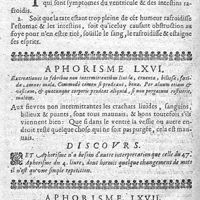 qui sont symptomes du ventricule & des intestins ra-
froidis.
2. Soit que la rate estant trop pleine de cét humeur rafroidisse
l'estomac & les intestins, soit qu'icelle causant obstruction au
foye pour n'en estre tiré, souille le sang, le rafroidisse & estaigne
ses esprits.
APHORISME LXVI.
Excretiones in febribus non intermittentibus liuidæ, cruentæ, biliosæ, fœti-
dæ, omnes malæ. Commodè tamen si prodeant, bonæ. Per aluum etiam &
vesicam, & quocunque corporis prodeat aliquid, si non purgatum restiterit,
malum.
Aux fievres non intermittantes les crachats liuides, sanguins,
bilieux & puants, sont tous mauuais, & bons toutefois s'ils
viennent bien: Que si dans le ventre la vessie ou autre en-
droit reste quelque chose qui ne soit pas purgée, cela est mau-
uais.
DISCOVRS.
CET Aphorisme n'a besoin d'autre interpretation que celle du 47.
Aphorisme du 4. liure, dont horsmis quelque changement de mots
il n'est qu'vne simple repetition.
APHORISME LXVII.